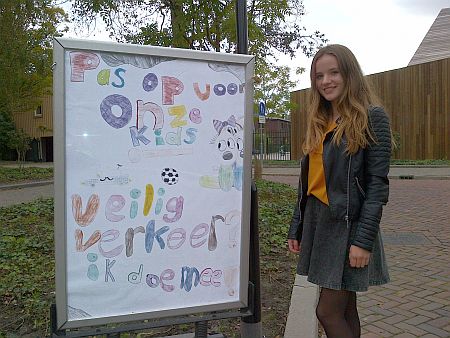 Pas op voor
onze
kids
veilig
verkeer?
ik doe mee!